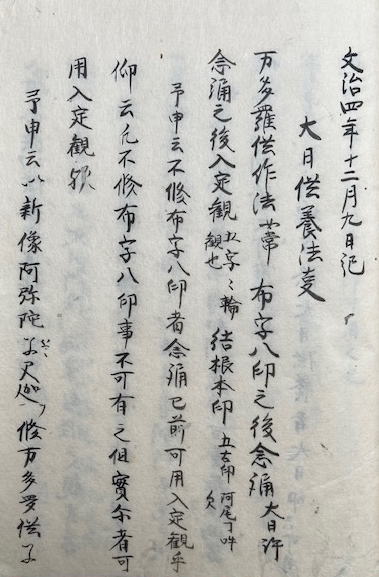 文治四年十二月九日記
大日供養法事
万多羅供作法常 布字八印之後念誦 大日許
念誦之後入定観 五字〻輪観也 結根本印 五古印 阿尾丁吽欠
予申云不修布字八印者念誦已前可用入定観乎
仰云凡不修布字八印事不可有之但實尓者可
用入定観欤
予申云以新像阿弥陀 修万多羅供